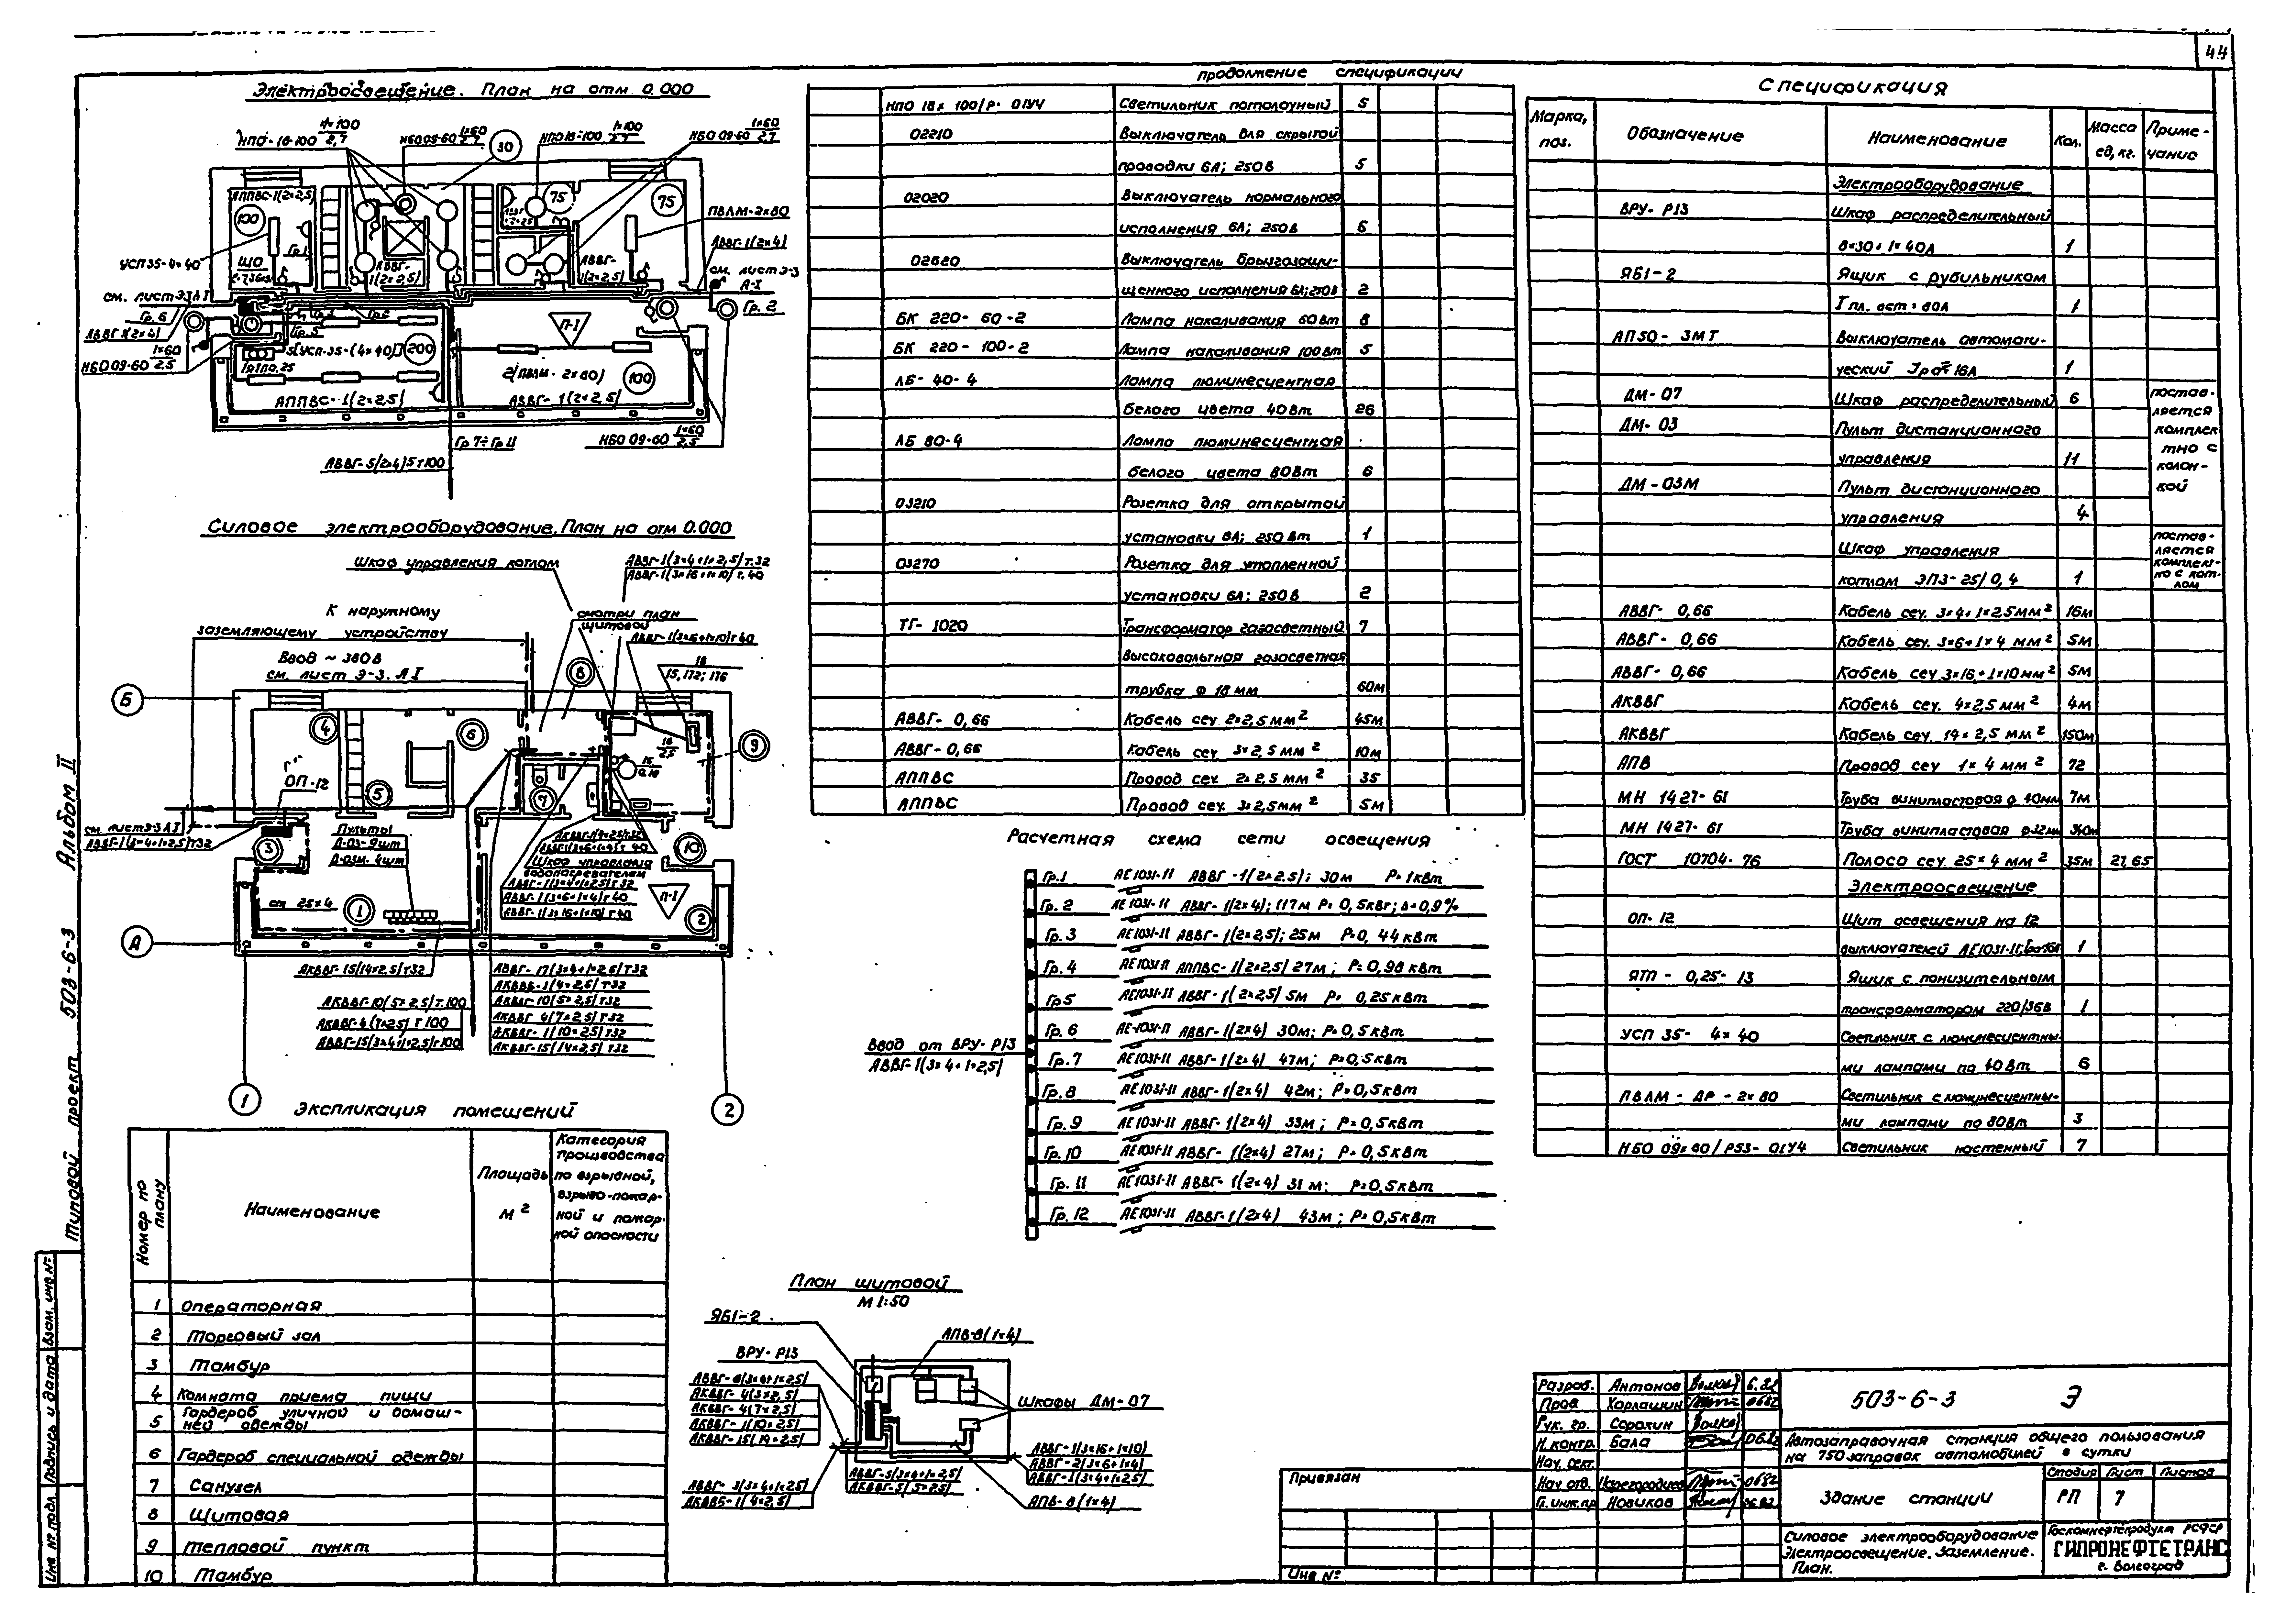 44
Электроосвещение. План на отм 0.000
НПО-18-100 1×100 2,7
НБО 09-60 1×60 2.7
30
НПО18-100 1×100 2.7
НБО 09-60 1×60 2.7
АППВС-1(2×2,5)
100
75
75
ПВЛМ-2×80
АВВГ-1(2×4)
см. лист Э-3
А-I
Гр. 2
УСП35-4×40
ЩО
Гр.1
АВВГ-1(2×2,5)
АВВГ-1(2×2,5)
см. лист Э3 А I
Гр. 6
АВВГ 1(2×4)
НБО 09-60 1×60 2.5
Гр. 5
5[УСП-35-(4×40)]
200
ЯТП 0.25
П-I
2(ПВЛМ-2×80)
100
АППВС-1(2×2,5)
АВВГ-1(2×2,5)
Гр 7÷Гр 11
НБО 09-60 1×60 2.5
АВВГ-5(2×4)5 т100
Силовое электрооборудование. План на отм 0.000
Шкаф управления котлом
АВВГ-1(3×4+1×2,5) т.32
АВВГ-1(3×16+1×10) т.40
К наружному
заземляющему устройству
смотри план
щитовой
АВВГ-1(3×6+1×10) т 40
Ввод ~ 380В
см. лист Э-3. А I
18
15, 172; 176
Б
4
6
8
9
ОП-12
5
7
3
10
см. лист Э-3 А I
АВВГ-1(3×4+1×2,5) т32
Пульты
Д-03-9шт
Д-03М. 4шт
АКВВГ-1(4×2,5) т32
АВВГ-1(3×6+1×4) т 40
Шкаф управления
водонагревателем
АВВГ-1(3×4+1×2,5) т 32
АВВГ-1(3×6+1×4) т 40
АВВГ-1(3×16+1×10) т 40
П-I
ст 25×4
1
2
А
АКВВГ-15(14×2,5) т32
АВВГ-17(3×4+1×2,5) т32
АКВВБ-1(4×2,5) т32
АКВВГ-10(5×2,5) т32
АКВВГ 4(7×2,5) т32
АКВВГ-1(10×2,5) т32
АКВВГ-15(14×2,5) т32
АКВВГ-10(5×2,5) т.100
АКВВГ-4(7×2,5) т 100
АВВГ-15(3×4+1×2,5) т100
1
2
Экспликация помещений
Номер по плану
Наименование
Площадь м²
Категория производства по взрывной, взрыво-пожарной и пожарной опасности
1 Операторная
2 Торговый зал
3 Тамбур
4 Комната приема пищи
5 Гардероб уличной и домашней одежды
6 Гардероб специальной одежды
7 Санузел
8 Щитовая
9 Тепловой пункт
10 Тамбур
продолжение спецификации
НПО 18×100/Р-01У4 Светильник потолочный 5
02210 Выключатель для скрытой
проводки 6А; 250В 5
02020 Выключатель нормального
исполнения 6А; 250В 6
02620 Выключатель брызгозащи-
щенного исполнения 6А; 250В 2
БК 220-60-2 Лампа накаливания 60Вт 8
БК 220-100-2 Лампа накаливания 100Вт 5
ЛБ-40-4 Лампа люминесцентная
белого цвета 40Вт 26
ЛБ 80-4 Лампа люминесцентная
белого цвета 80Вт 6
03210 Розетка для открытой
установки 6А; 250 Вт 1
03270 Розетка для утопленной
установки 6А; 250В 2
ТГ-1020 Трансформатор газосветный 7
Высоковольтная газосветная
трубка ф 18 мм 60м
АВВГ-0,66 Кабель сеч. 2×2,5 мм² 45м
АВВГ-0,66 Кабель сеч. 3×2,5 мм² 10м
АППВС Провод сеч. 2×2,5 мм² 35
АППВС Провод сеч. 3×2,5мм² 5м
Расчетная схема сети освещения
Гр.1 АЕ1031-11 АВВГ-1(2×2.5); 30м Р=1кВт
Гр. 2 АЕ1031-11 АВВГ-1(2×4); 117м Р=0,5кВт; Δ=0,9%
Гр. 3 АЕ1031-11 АВВГ-1(2×2,5); 25м Р=0,44кВт
Гр. 4 АЕ1031-11 АППВС-1(2×2,5) 27м; Р=0,98 кВт
Гр5 АЕ1031-11 АВВГ-1(2×2,5) 5м Р=0,25кВт
Гр. 6 АЕ-1031-11 АВВГ-1(2×4) 30м; Р=0,5кВт
Гр. 7 АЕ1031-11 АВВГ-1(2×4) 47м; Р=0,5кВт
Гр. 8 АЕ1031-11 АВВГ-1(2×4) 42м; Р=0,5кВт
Гр. 9 АЕ1031-11 АВВГ-1(2×4) 33м; Р=0,5кВт
Гр. 10 АЕ1031-11 АВВГ-1(2×4) 27м; Р=0,5кВт
Гр. 11 АЕ1031-11 АВВГ-1(2×4) 31 м; Р=0,5кВт
Гр. 12 АЕ1031-11 АВВГ-1(2×4) 43м; Р=0,5кВт
Ввод от ВРУ-Р13
АВВГ-1(3×4+1×2,5)
План щитовой
М 1:50
ЯБ1-2
ВРУ-Р13
АПВ-8(1×4)
АВВГ-6(3×4+1×2,5)
АКВВГ-4(5×2,5)
АКВВГ-4(7×2,5)
АКВВГ-1(10×2,5)
АКВВГ-15(14×2,5)
Шкафы ДМ-07
АВВГ-1(3×16+1×10)
АВВГ-2(3×6+1×4)
АВВГ-1(3×4+1×2,5)
АВВГ-3(3×4+1×2,5)
АКВВБ-1(4×2,5)
АВВГ-5(3×4+1×2,5)
АКВВГ-5(5×2,5)
АПВ-8(1×4)
Спецификация
Марка, поз.
Обозначение
Наименование
Кол.
Масса ед, кг.
Приме-чание
Электрооборудование
ВРУ-Р13 Шкаф распределительный
8×30+1×40А 1
ЯБ1-2 Ящик с рубильником
I пл. вст=80А 1
АП50-3МТ Выключатель автомати-
ческий Iра=16А 1
ДМ-07 Шкаф распределительный 6
ДМ-03 Пульт дистанционного
управления 11
ДМ-03М Пульт дистанционного
управления 4
постав-
ляется
комплек
тно с
колон-
кой
Шкаф управления
котлом ЭПЗ-25/0,4 1
постав-
ляется
комплект-
но с кот-
лом
АВВГ-0,66 Кабель сеч. 3×4+1×2.5мм² 16м
АВВГ-0,66 Кабель сеч. 3×6+1×4 мм² 5м
АВВГ-0,66 Кабель сеч 3×16+1×10мм² 5м
АКВВГ Кабель сеч. 4×2,5 мм² 4м
АКВВГ Кабель сеч. 14×2,5 мм² 150м
АПВ Провод сеч 1×4 мм² 72
МН 1427-61 Труба винипластовая ф 40мм 7м
МН 1427-61 Труба винипластовая ф32мм 340м
ГОСТ 10704-76 Полоса сеч 25×4 мм² 35м 27,65
Электроосвещение
ОП-12 Щит освещения на 12
выключателей АЕ1031-11, 1
ЯТП-0,25-13 Ящик с понизительным
трансформатором 220/36В 1
УСП 35-4×40 Светильник с люминесцентны-
ми лампами по 40Вт 6
ПВЛМ-ДР-2×80 Светильник с люминесцентны-
ми лампами по 80Вт 3
НБО 09×60/Р53-01У4 Светильник настенный 7
Альбом II
Типовой проект 503-6-3
Взам. инв №
Подпись и дата
Инв № подл
Разраб. Антонов 6.82
Пров Харлашин 0682
Рук. гр. Сорокин
Н. контр. Бала 06.82
Нач. сект.
Нач. отд. Царегородцев 0682
Гл. инж. пр Новиков 06.82
503-6-3 Э
Автозаправочная станция общего пользования
на 750 заправок автомобилей в сутки
Здание станции
Стадия Лист Листов
РП 7
Силовое электрооборудование
Электроосвещение. Заземление.
План.
Госкомнефтепродукт РСФСР
ГИПРОНЕФТЕТРАНС
г. Волгоград
Привязан
Инв №